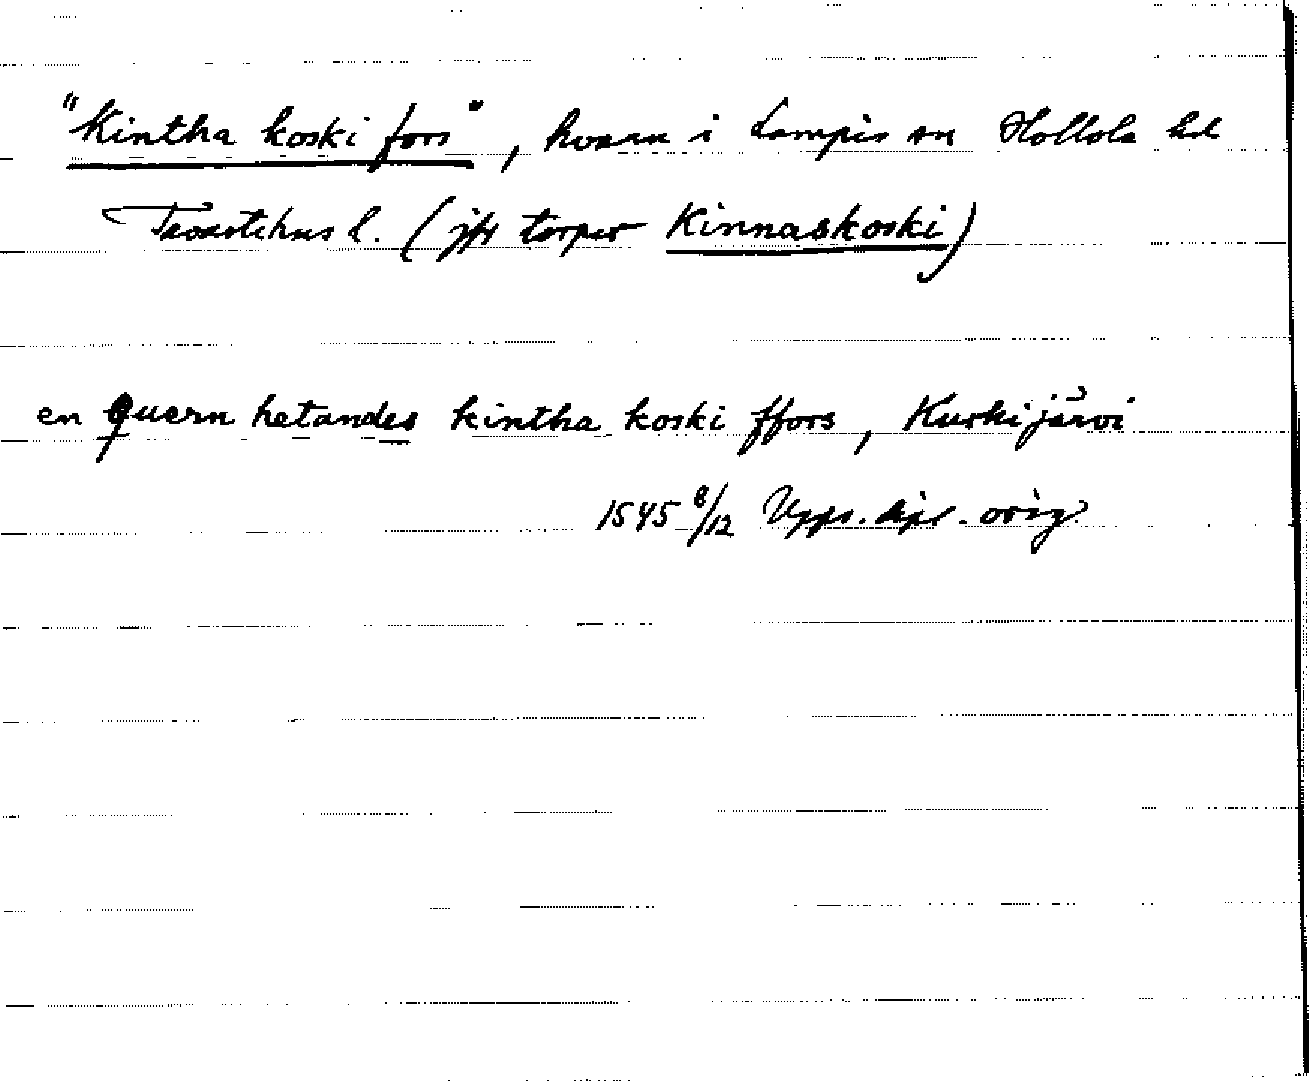 "Kintha koski fors", kvarn i Lampis sn Hollola hd
Tavastehus l. (jfr torpet Kinnaskoski)
en quern hetandes kintha koski ffors, Kurkijärvi
1545 8/12 Upps. dipl. orig.